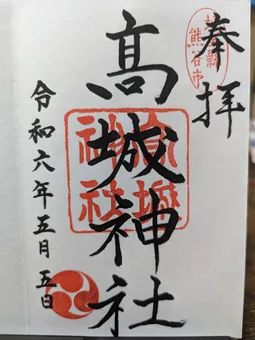 奉拝
埼玉縣
熊谷市
髙城神社
高城
神社
令和六年五月五日